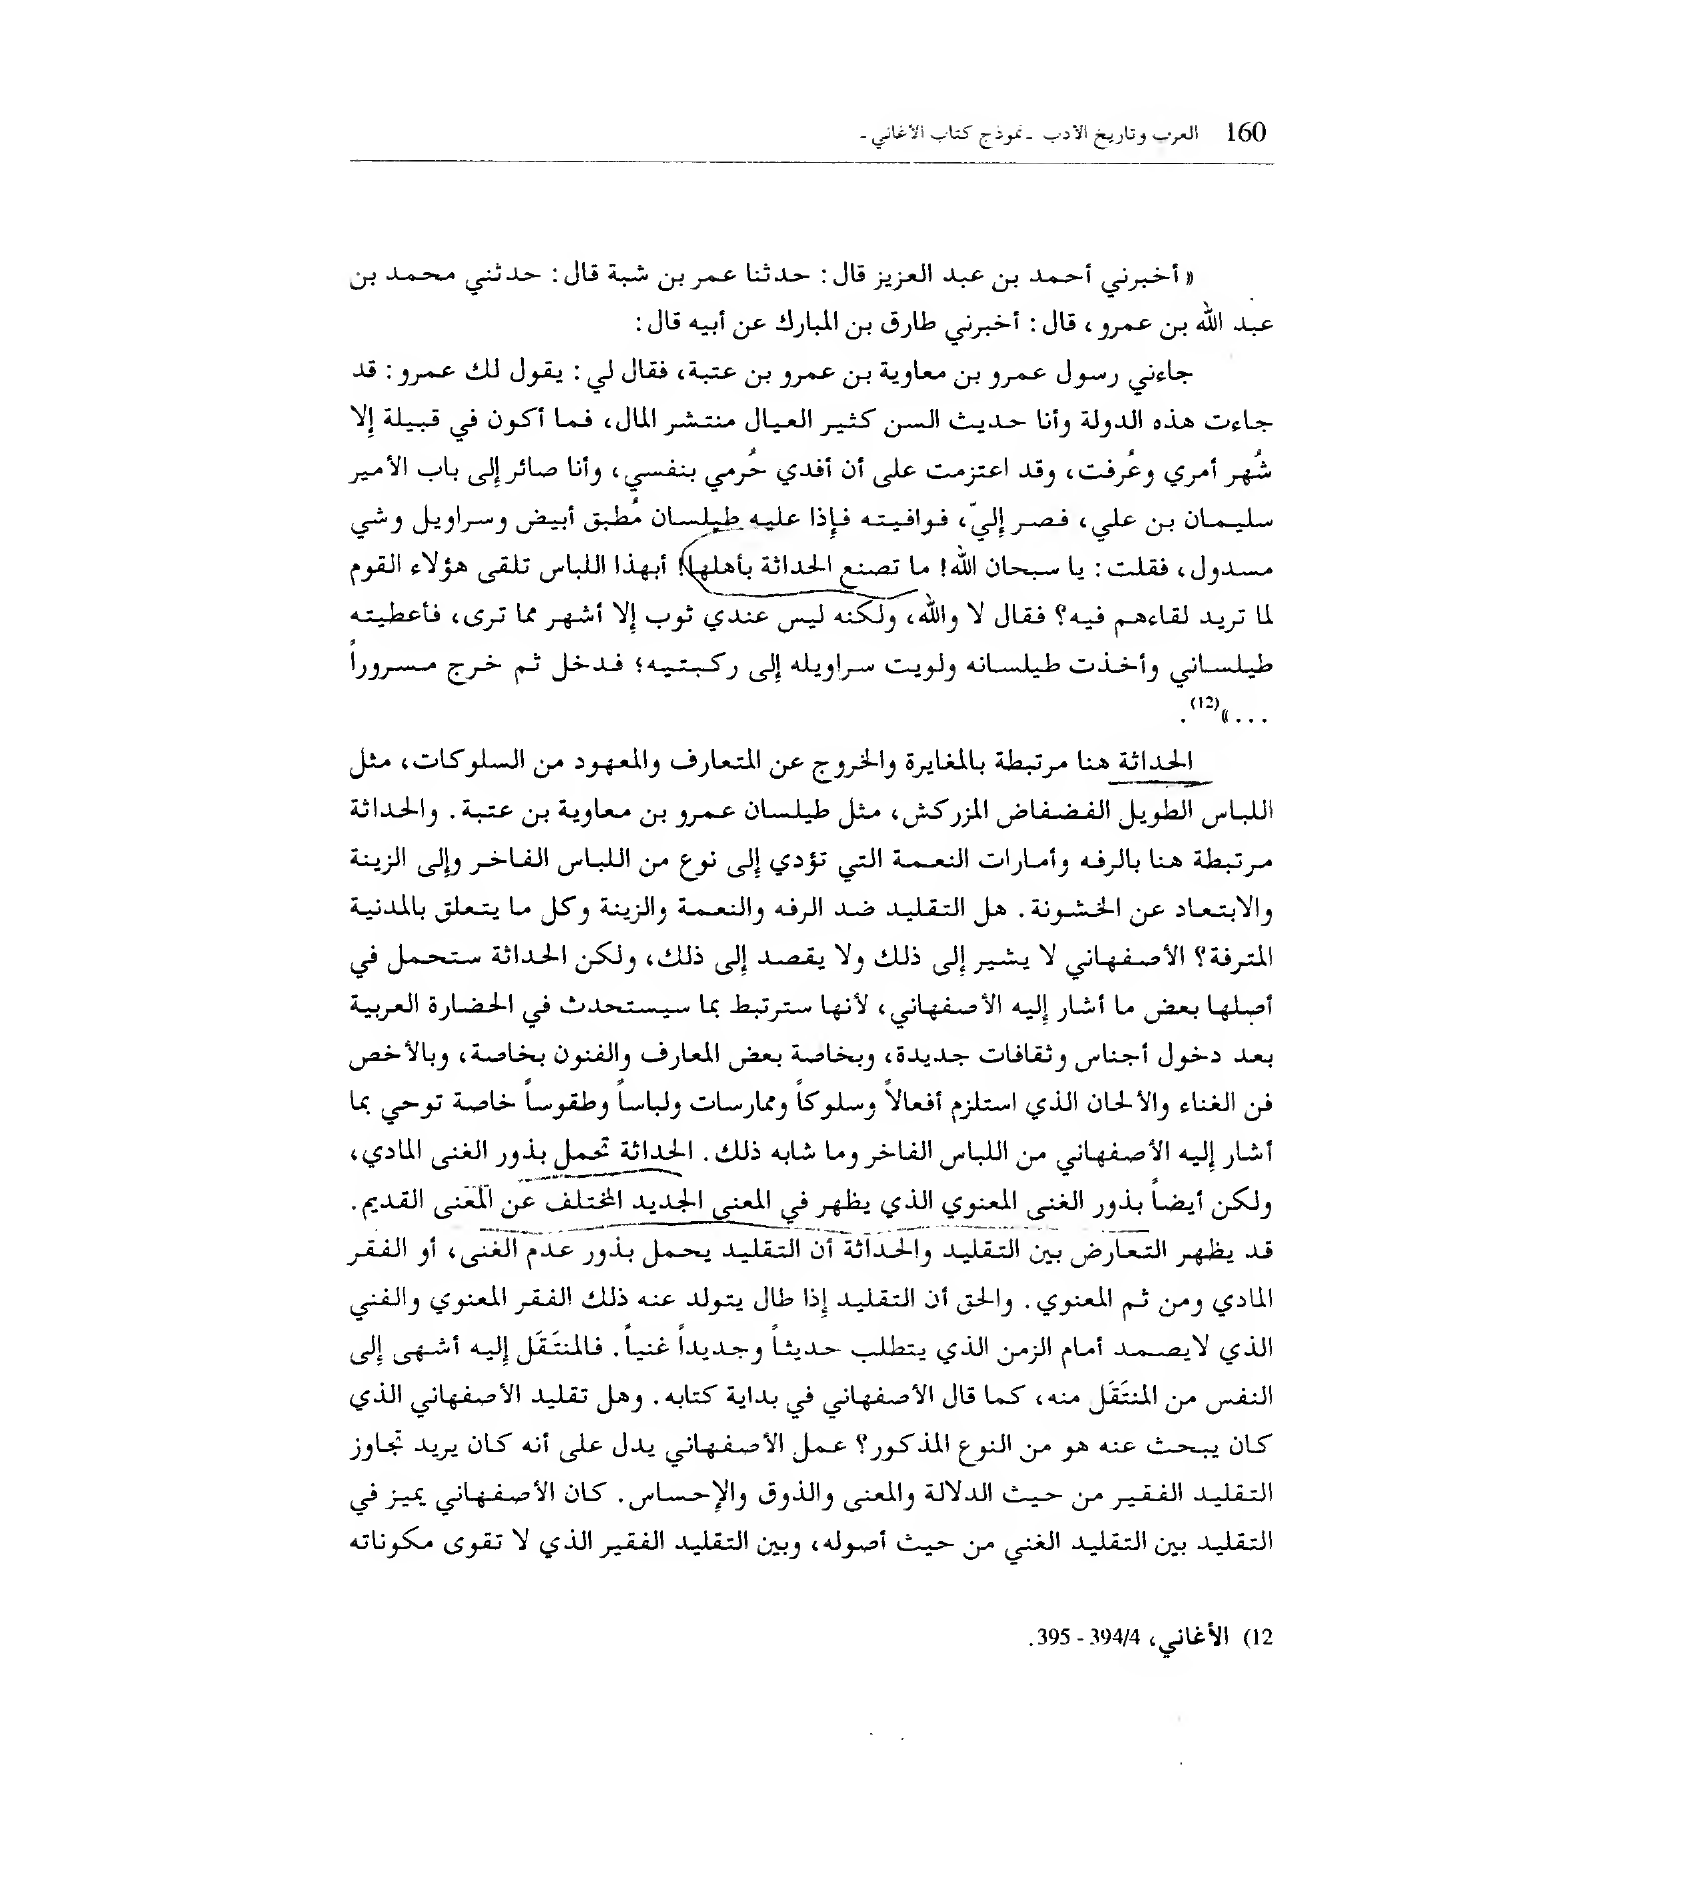 160 العرب وتاريخ الأدب ـ نموذج كتاب الأغاني ـ
« أخبرني أحمد بن عبد العزيز قال : حدثنا عمر بن شبة قال : حدثني محمد بن
عبد الله بن عمرو ، قال : أخبرني طارق بن المبارك عن أبيه قال :
جاءني رسول عمرو بن معاوية بن عمرو بن عتبة، فقال لي : يقول لك عمرو : قد
جاءت هذه الدولة وأنا حديث السن كثير العيال منتشر المال، فما أكون في قبيلة إلا
شُهر أمري وعُرفت، وقد اعتزمت على أن أفدي حُرمي بنفسي، وأنا صائر إلى باب الأمير
سليمان بن علي، فصر إليّ، فوافيته فإذا عليه طيلسان مُطبق أبيض وسراويل وشي
مسدول، فقلت : يا سبحان الله! ما تصنع الحداثة بأهلها! أبهذا اللباس تلقى هؤلاء القوم
لما تريد لقاءهم فيه؟ فقال لا والله، ولكنه ليس عندي ثوب إلا أشهر مما ترى، فأعطيته
طيلساني وأخذت طيلسانه ولويت سراويله إلى ركبتيه؛ فدخل ثم خرج مسروراً
...»(12).
الحداثة هنا مرتبطة بالمغايرة والخروج عن المتعارف والمعهود من السلوكات، مثل
اللباس الطويل الفضفاض المزركش، مثل طيلسان عمرو بن معاوية بن عتبة. والحداثة
مرتبطة هنا بالرفه وأمارات النعمة التي تؤدي إلى نوع من اللباس الفاخر وإلى الزينة
والابتعاد عن الخشونة. هل التقليد ضد الرفه والنعمة والزينة وكل ما يتعلق بالمدنية
المترفة؟ الأصفهاني لا يشير إلى ذلك ولا يقصد إلى ذلك، ولكن الحداثة ستحمل في
أصلها بعض ما أشار إليه الأصفهاني، لأنها سترتبط بما سيستحدث في الحضارة العربية
بعد دخول أجناس وثقافات جديدة، وبخاصة بعض المعارف والفنون بخاصة، وبالأخص
فن الغناء والألحان الذي استلزم أفعالاً وسلوكاً وممارسات ولباساً وطقوساً خاصة توحي بما
أشار إليه الأصفهاني من اللباس الفاخر وما شابه ذلك. الحداثة تحمل بذور الغنى المادي،
ولكن أيضاً بذور الغنى المعنوي الذي يظهر في المعنى الجديد المختلف عن المعنى القديم.
قد يظهر التعارض بين التقليد والحداثة أن التقليد يحمل بذور عدم الغنى، أو الفقر
المادي ومن ثم المعنوي. والحق أن التقليد إذا طال يتولد عنه ذلك الفقر المعنوي والفني
الذي لايصمد أمام الزمن الذي يتطلب حديثاً وجديداً غنياً. فالمنتَقَل إليه أشهى إلى
النفس من المنتَقَل منه، كما قال الأصفهاني في بداية كتابه. وهل تقليد الأصفهاني الذي
كان يبحث عنه هو من النوع المذكور؟ عمل الأصفهاني يدل على أنه كان يريد تجاوز
التقليد الفقير من حيث الدلالة والمعنى والذوق والإحساس. كان الأصفهاني يميز في
التقليد بين التقليد الغني من حيث أصوله، وبين التقليد الفقير الذي لا تقوى مكوناته
12) الأغاني، 394/4 - 395.